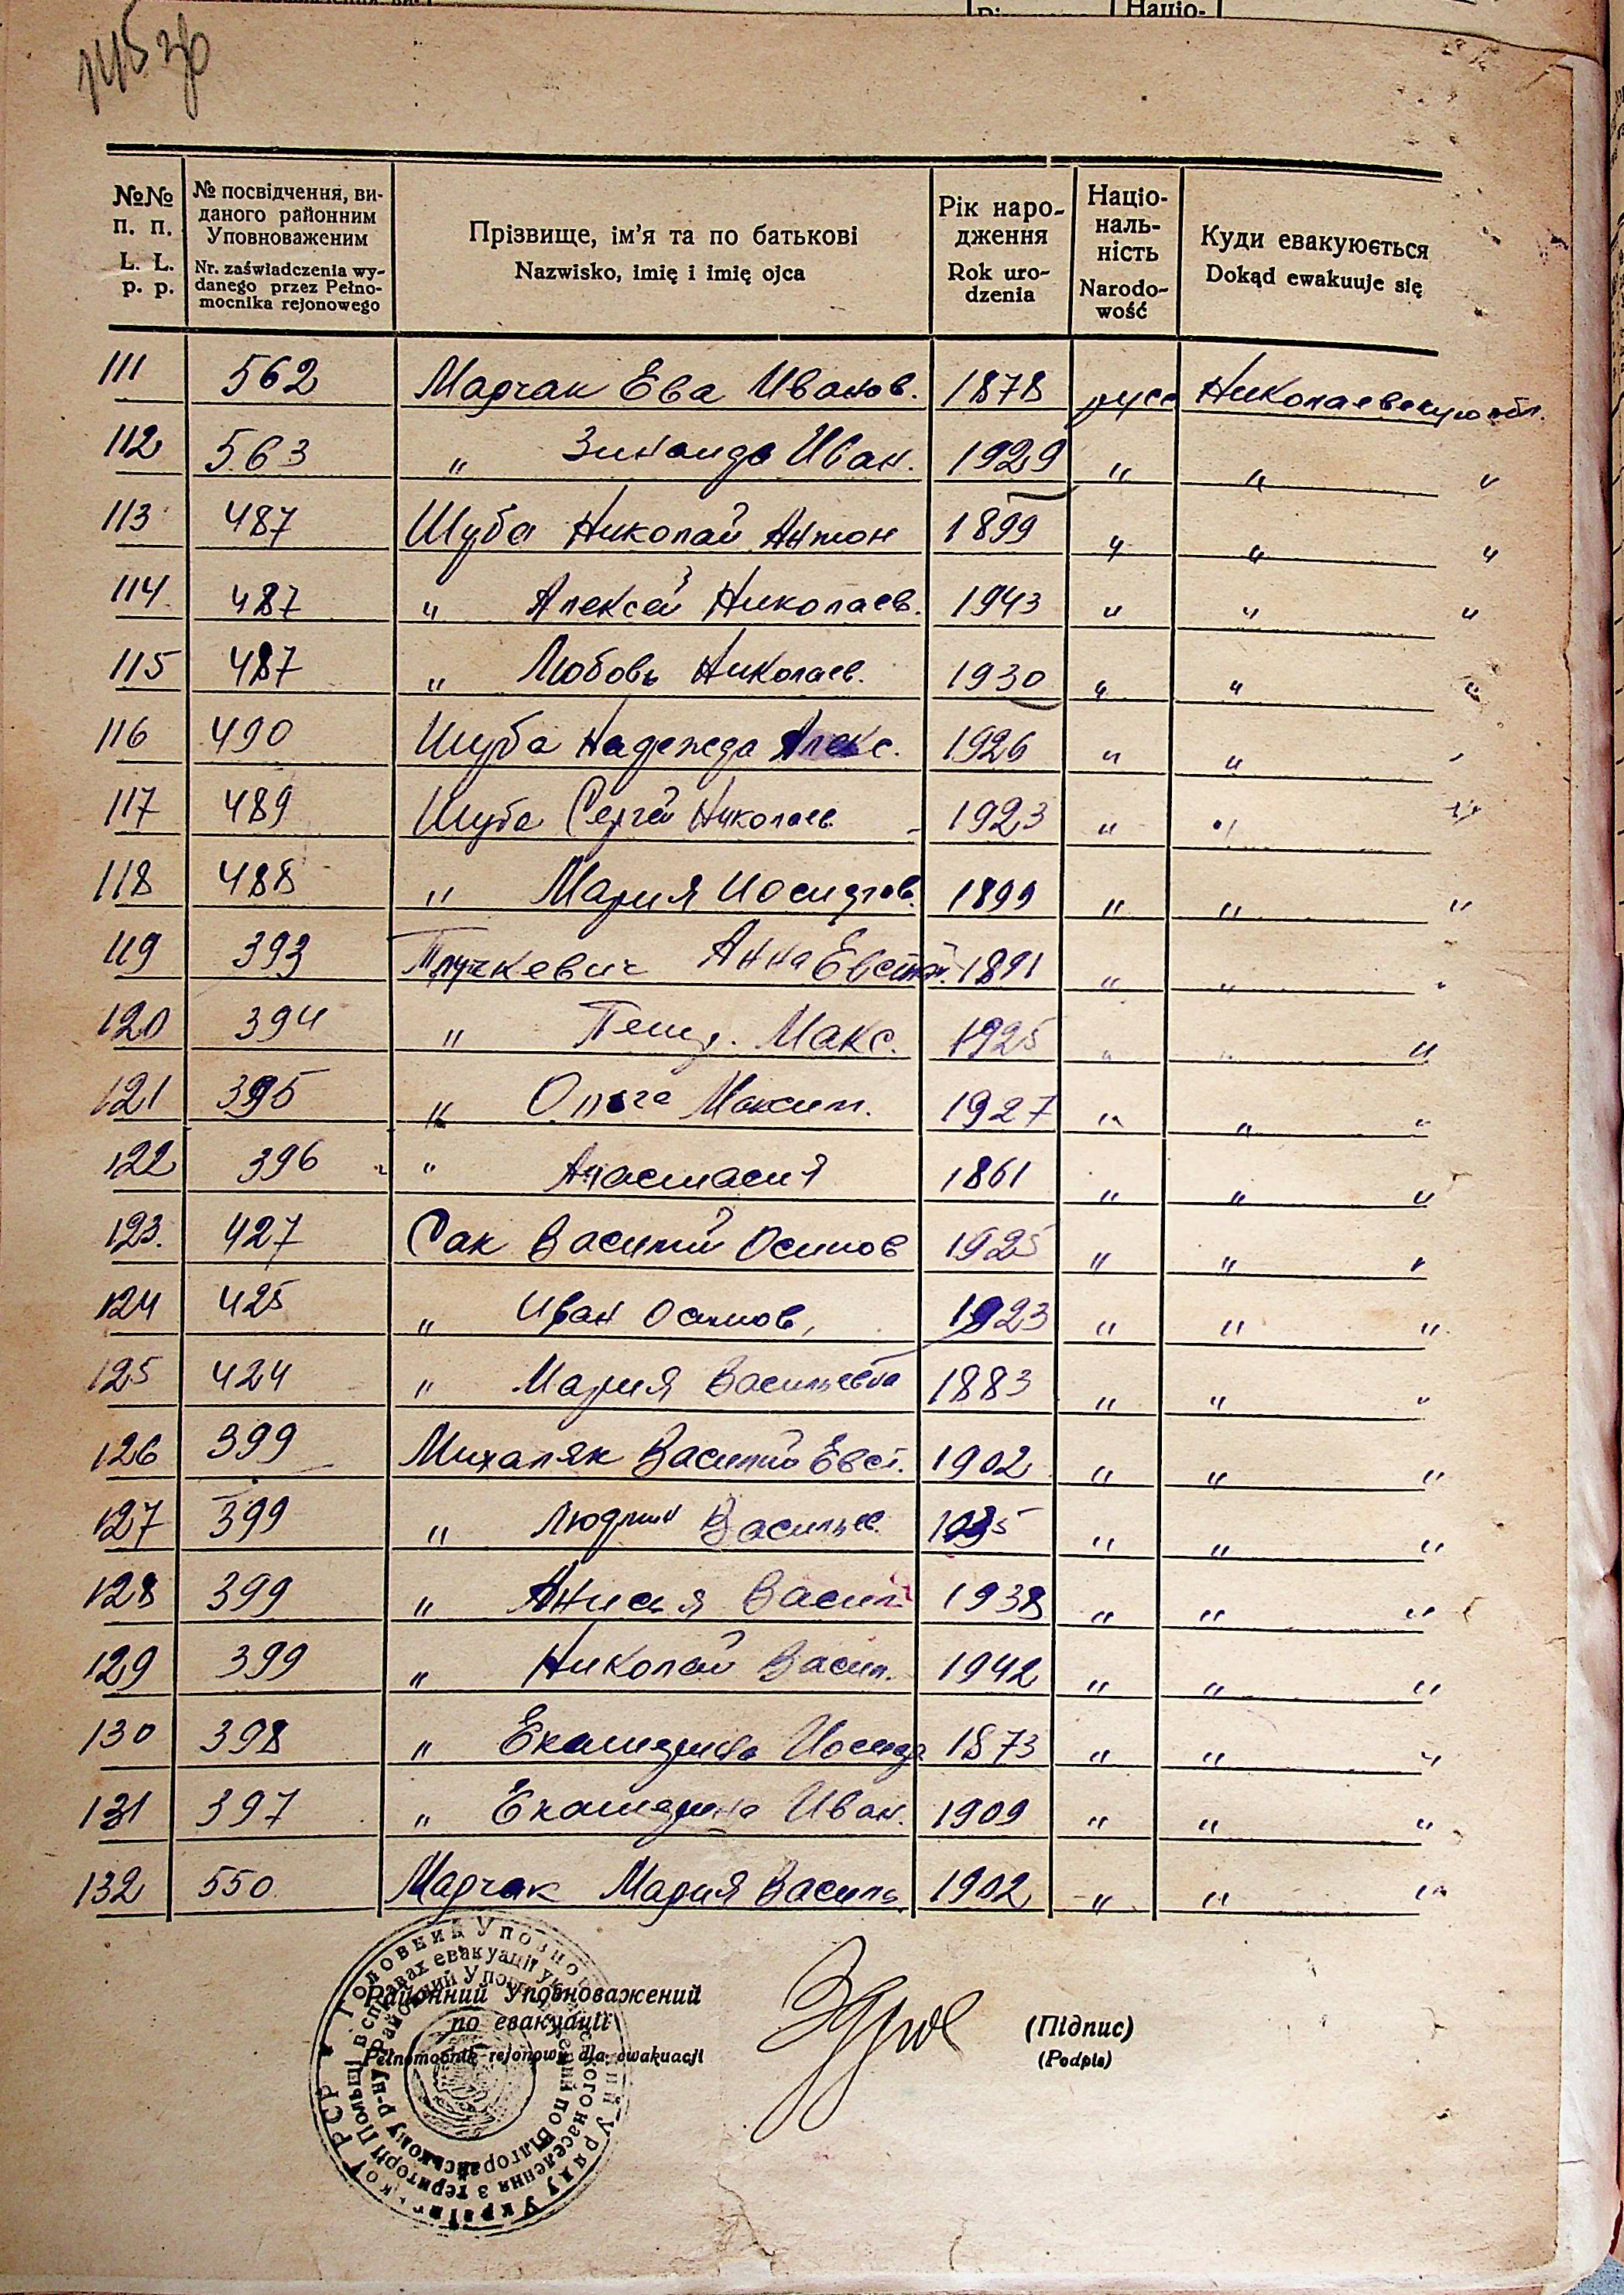 145 зв
№№ п. п.
L. L. p. p.
№ посвідчення, ви-
даного районним
Уповноваженим
Nr. zaświadczenia wy-
danego przez Pełno-
mocnika rejonowego
Прізвище, ім'я та по батькові
Nazwisko, imię i imię ojca
Рік наро-
дження
Rok uro-
dzenia
Націо-
наль-
ність
Narodo-
wość
Куди евакуюється
Dokąd ewakuuje się
111 562 Марчак Ева Иванов. 1878 русс Николаевскую обл.
112 563 " Зинаида Иван. 1929 " " "
113 487 Шуба Николай Антон 1899 " " "
114 487 " Алексей Николаев. 1943 " " "
115 487 " Любовь Николаев. 1930 " " "
116 490 Шуба Надежда Алекс. 1926 " "
117 489 Шуба Сергей Николаев 1923 " " "
118 488 " Мария Иосифов. 1899 " " "
119 393 Анна 1891 " " "
120 394 " Макс. 1925 " " "
121 395 " Ольга Максим. 1927 " " "
122 396 " Анастасия 1861 " " "
123. 427 Сак Василий Осипов 1925 " " "
124 425 " Иван Осипов, 1923 " " "
125 424 " Мария Васильевна 1883 " " "
126 399 Михаляк Василий Евст. 1902 " " "
127 399 " Людмил Васильев. " " "
128 399 " Анисья Васил 1938 " " "
129 399 " Николай Васил. 1942 " " "
130 398 " Екатерина Иосиф 1873 " " "
131 397 " Екатерина Иван. 1909 " " "
132 550 Марчак Мария Василь 1902 " " "
Районний Уповноважений
по евакуації
Pełnomocnik rejonowy dla ewakuacji
(Підпис)
(Podpis)